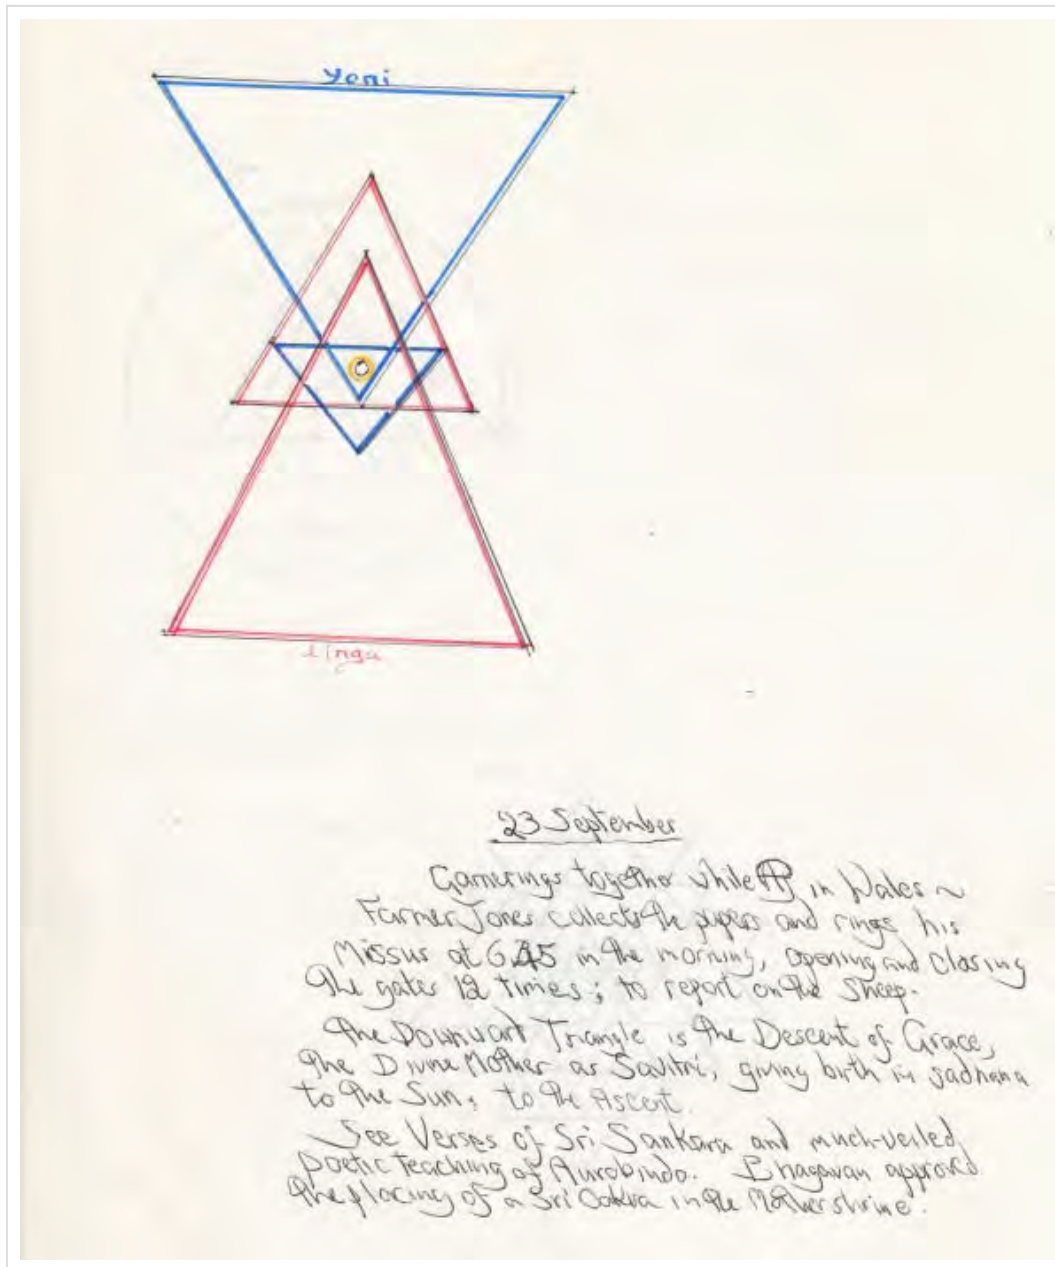 yoni
linga
23 September
Garnerings together while in Wales ~
Farmer Jones collects the papers and rings his
Missus at 6.45 in the morning, opening and closing
the gates 12 times; to report on the sheep.
The Downward Triangle is the Descent of Grace,
the Divine Mother as Savitri, giving birth in sadhana
to the Sun, to the Ascent.
See Verses of Sri Sankara and much-veiled
poetic teaching of Aurobindo. Bhagavan approved
the placing of a Sri Cakra in the Mother shrine.